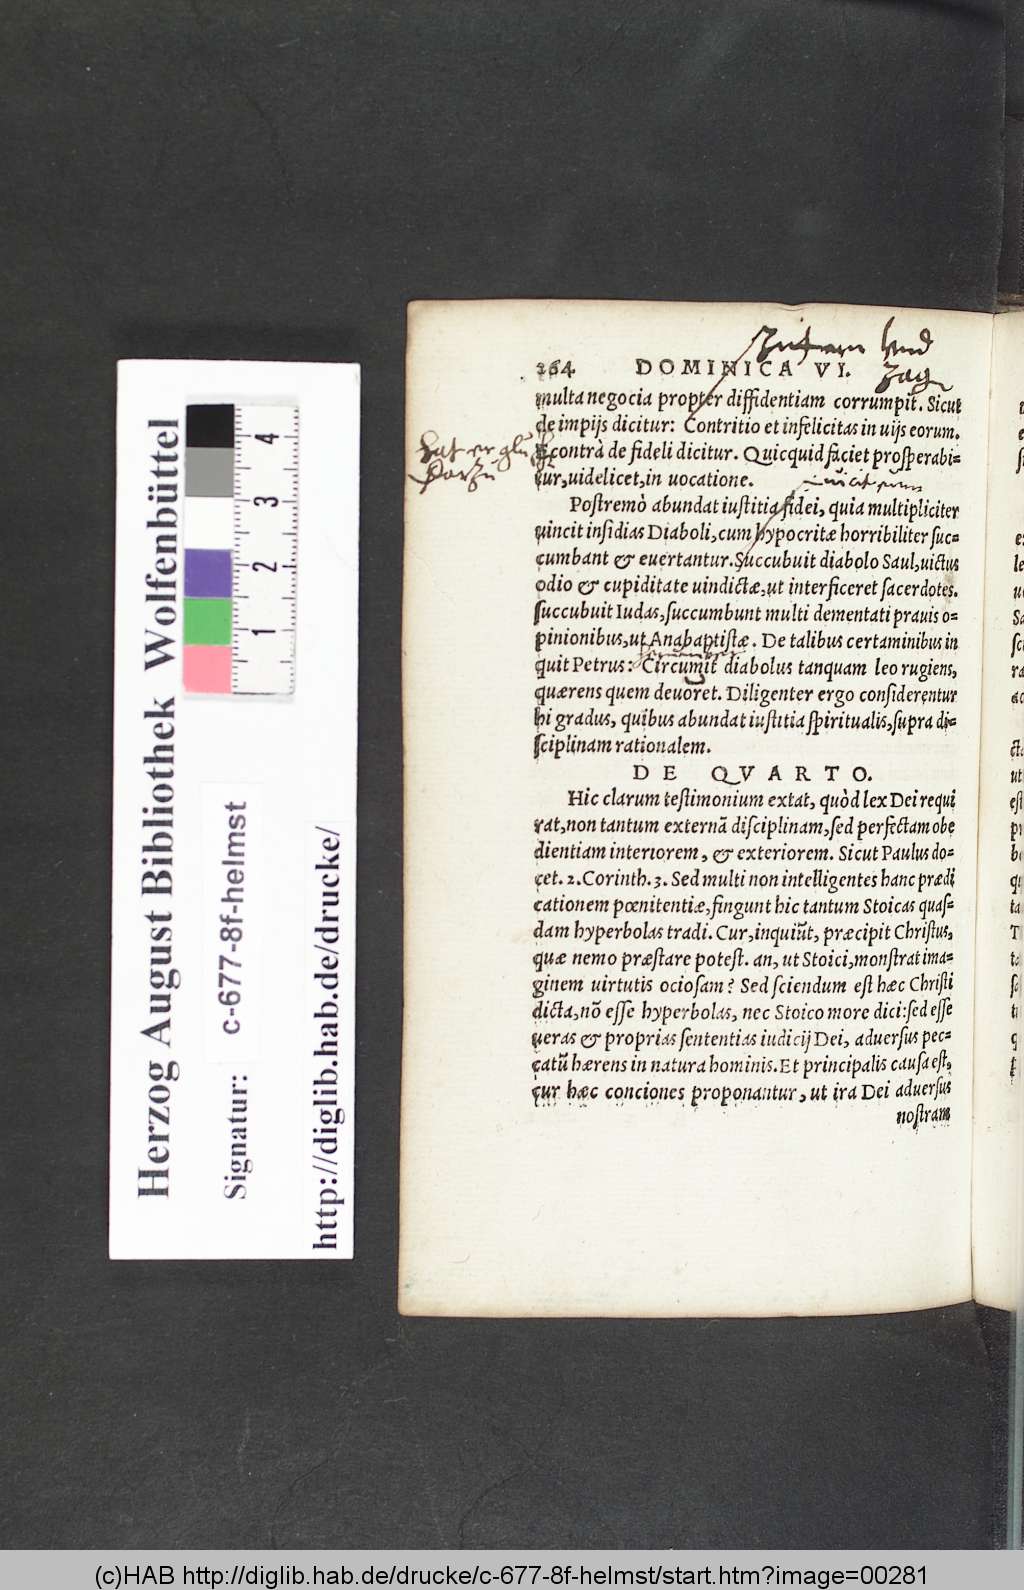 Herzog August Bibliothek Wolfenbüttel
Signatur: c-677-8f-helmst
http://diglib.hab.de/drucke/
1 2 3 4
264. DOMINICA VI.
multa negocia propter diffidentiam corrumpit. Sicut
de impijs dicitur: Contritio et infelicitas in uijs eorum.
Econtrà de fideli dicitur. Quicquid faciet prosperabi=
tur, uidelicet, in uocatione.
Postremò abundat iustitia fidei, quia multipliciter
uincit insidias Diaboli, cum hypocritæ horribiliter suc=
cumbant & euertantur. Succubuit diabolo Saul, uictus
odio & cupiditate uindictæ, ut interficeret sacerdotes.
succubuit Iudas, succumbunt multi dementati prauis o=
pinionibus, ut Anabaptistæ. De talibus certaminibus in
quit Petrus: Circumit diabolus tanquam leo rugiens,
quærens quem deuoret. Diligenter ergo considerentur
hi gradus, quibus abundat iustitia spiritualis, supra di=
sciplinam rationalem.
DE QVARTO.
Hic clarum testimonium extat, quòd lex Dei requi
rat, non tantum externã disciplinam, sed perfectam obe
dientiam interiorem, & exteriorem. Sicut Paulus do=
cet. 2. Corinth. 3. Sed multi non intelligentes hanc prædi
cationem pœnitentiæ, fingunt hic tantum Stoicas quas=
dam hyperbolas tradi. Cur, inquiũt, præcipit Christus,
quæ nemo præstare potest. an, ut Stoici, monstrat ima=
ginem uirtutis ociosam? Sed sciendum est hæc Christi
dicta, nõ esse hyperbolas, nec Stoico more dici: sed esse
ueras & proprias sententias iudicij Dei, aduersus pec=
catũ hærens in natura hominis. Et principalis causa est,
cur hæc conciones proponantur, ut ira Dei aduersus
nostram
(c)HAB http://diglib.hab.de/drucke/c-677-8f-helmst/start.htm?image=00281